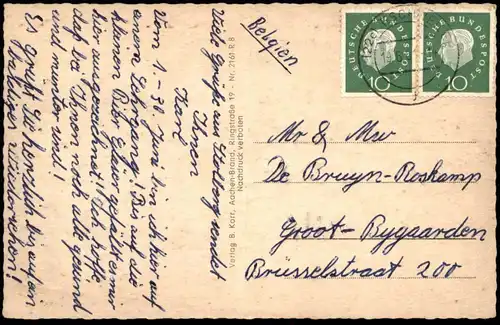 Belgien
Viele Grüße aus Stolberg sendet
Ihnen
Karl
Vom 1. - 30. Juni bin ich hier auf
einem Lehrgang! Bis auf die
kleinen Biler Eifauer gefällt es mir
hier ausgezeichnet! Ich hoffe
daß bei Ihnen noch alle gesund
und munter sind!
Es grüßt Sie herzlich bis auf ein
baldiges Wiedersehen!
Verlag B. Korr, Aachen-Brand, Ringstraße 19 - Nr. 2161 R B
Nachdruck verboten
DEUTSCHE BUNDESPOST
10
DEUTSCHE BUNDESPOST
10
Mr & Mevr
De Bruyn-Roskamp
Groot-Bygaarden
Brüsselstraat 200